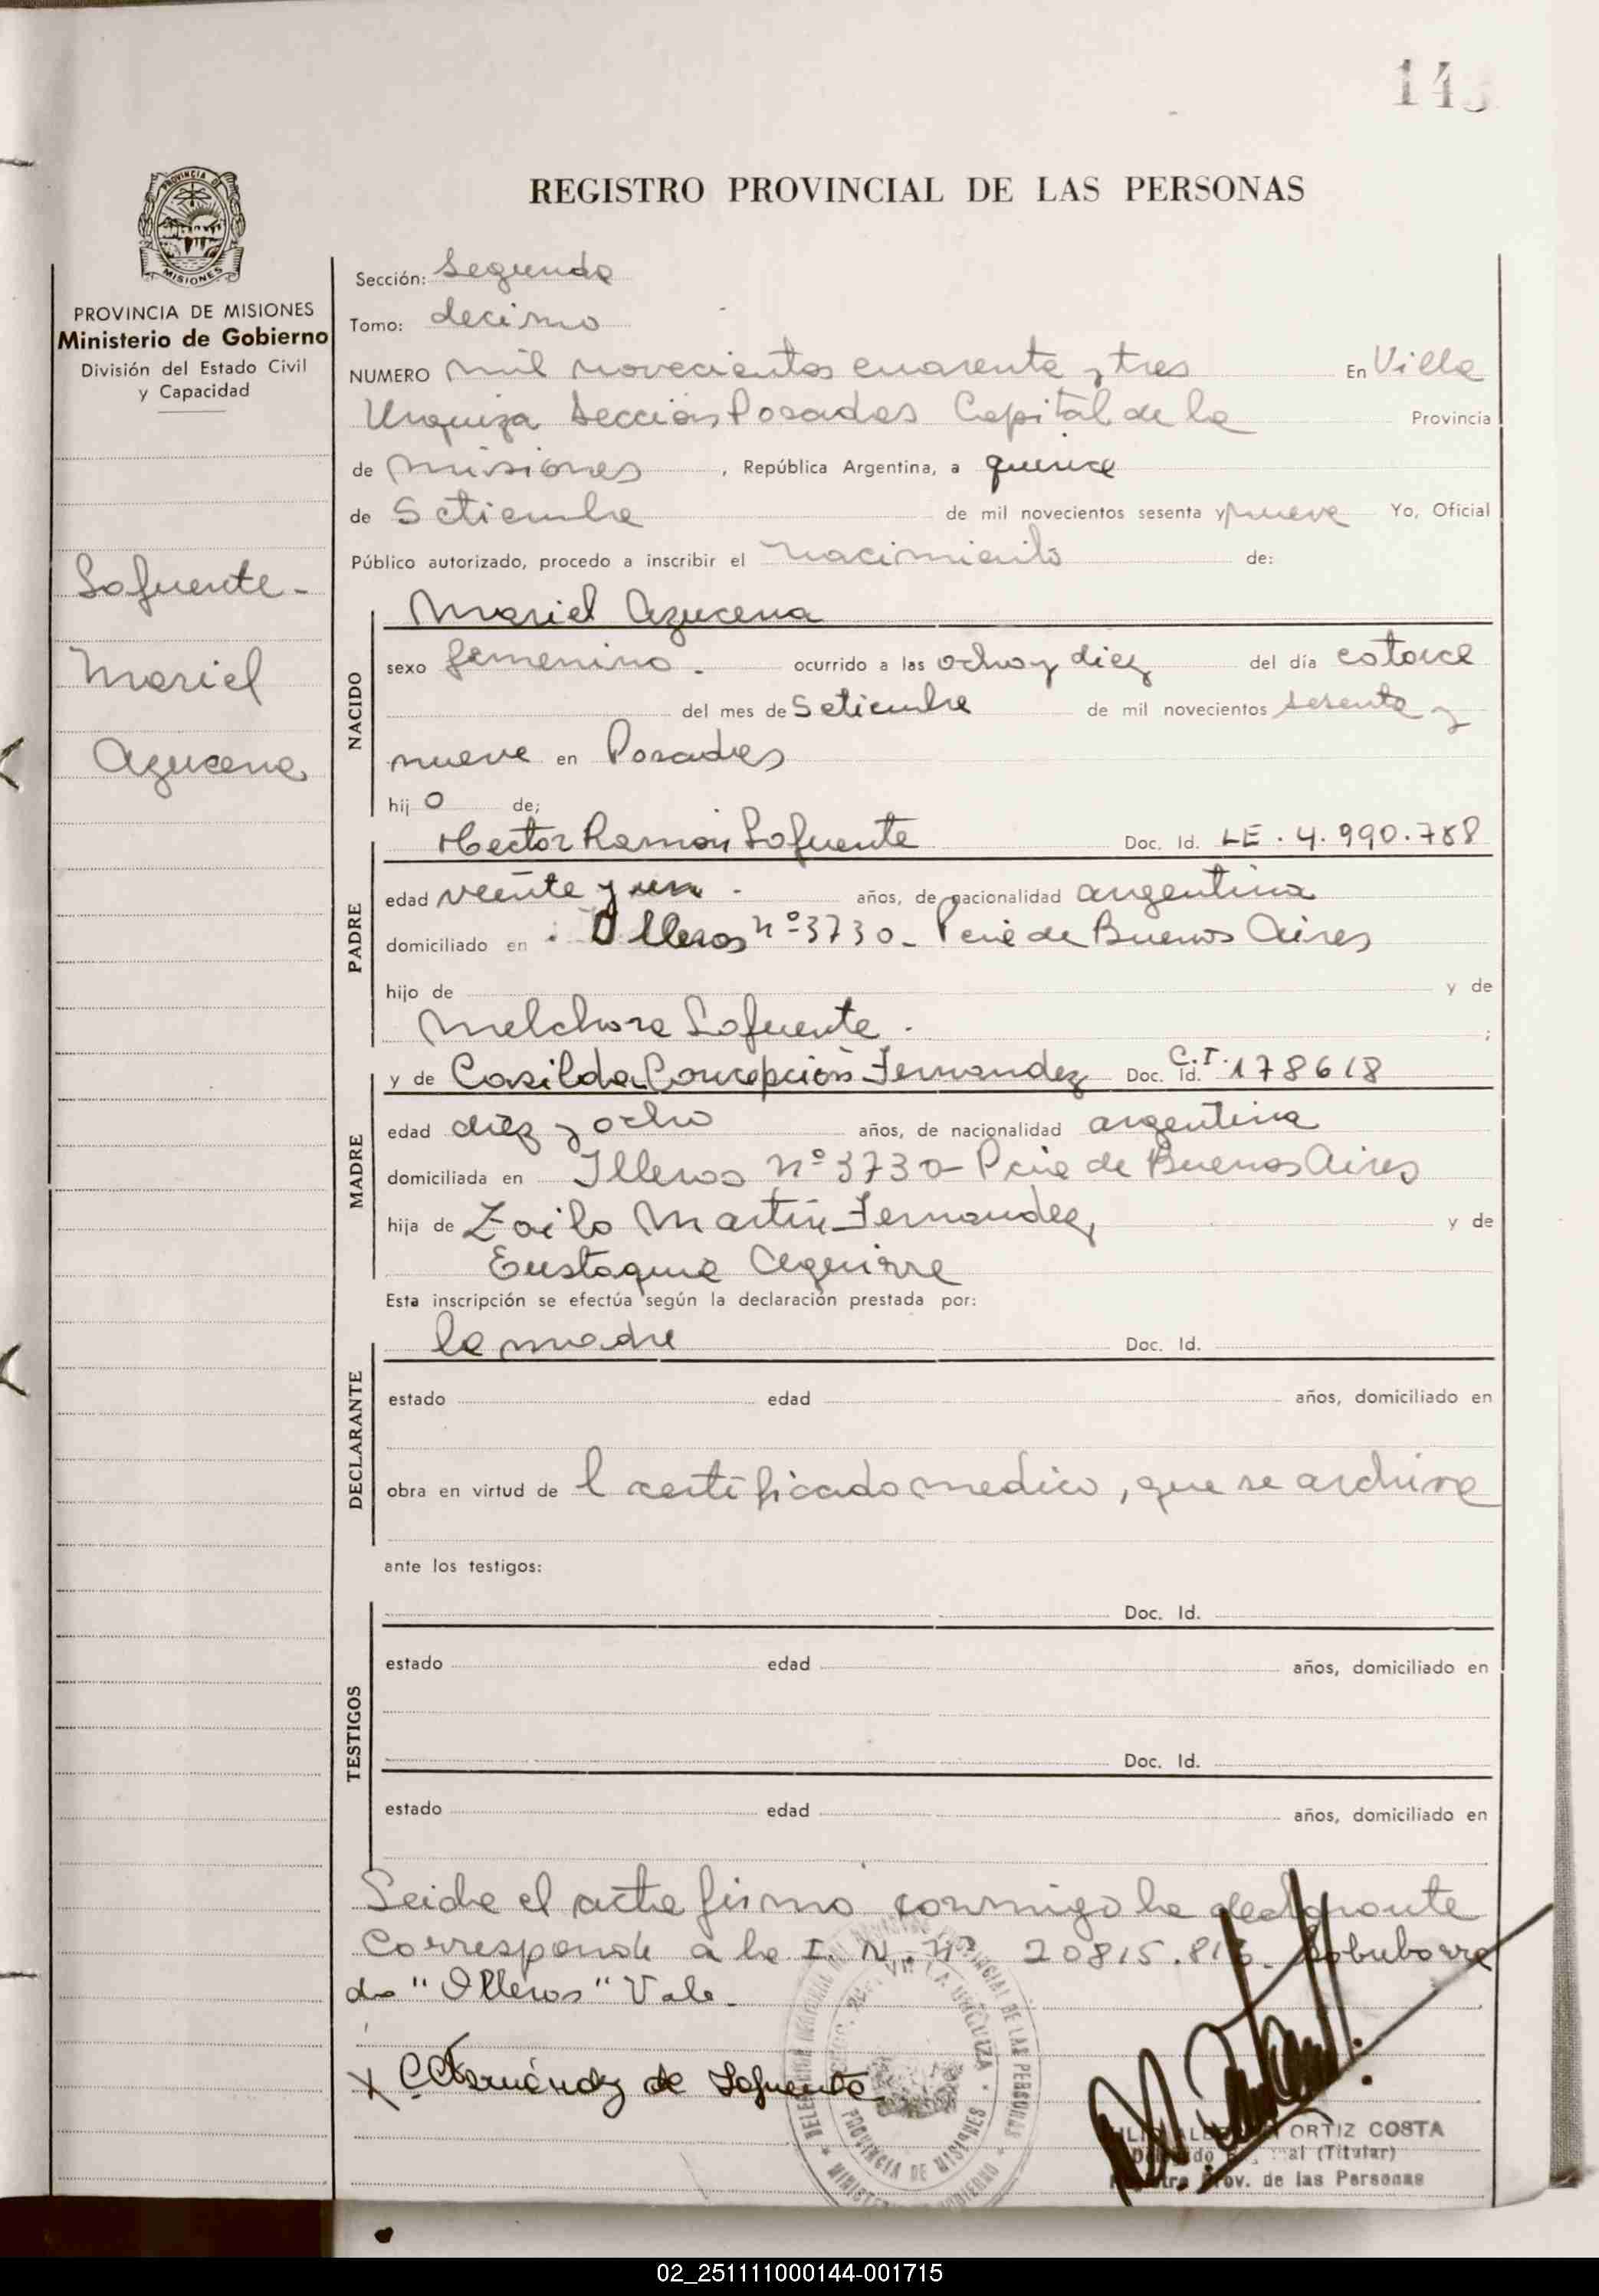 REGISTRO PROVINCIAL DE LAS PERSONAS
PROVINCIA DE MISIONES
Ministerio de Gobierno
División del Estado Civil
y Capacidad
Lafuente -
Mariel
Azucena
Sección: Segunda
Tomo: decimo
NUMERO mil novecientos cuarenta y tres En Villa
Urquiza Sección Posadas Capital de la Provincia
de Misiones, República Argentina, a quince
de Setiembre de mil novecientos sesenta y nueve Yo, Oficial
Público autorizado, procedo a inscribir el nacimiento de:
NACIDO
Mariel Azucena
sexo femenino. ocurrido a las ocho y diez del día catorce
del mes de Setiembre de mil novecientos sesenta y
nueve en Posadas
hij o de;
PADRE
Hector Ramón Lafuente Doc. Id. LE. 4.990.788
edad veinte y un - años, de nacionalidad argentina
domiciliado en Olleros nº 3730- Pcia de Buenos Aires
hijo de y de
Melchora Lafuente. ;
MADRE
y de Casilda Concepción Fernandez Doc. Id. C.I. 178618
edad diez y ocho años, de nacionalidad argentina
domiciliada en Illeros nº 3730- Pcia de Buenos Aires
hija de Zoilo Martin Fernandez y de
Eustaquia Aguirre
Esta inscripción se efectúa según la declaración prestada por:
DECLARANTE
la madre Doc. Id.
estado edad años, domiciliado en
obra en virtud de l certificado medico, que se archiva
ante los testigos:
TESTIGOS
Doc. Id.
estado edad años, domiciliado en
Doc. Id.
estado edad años, domiciliado en
Leida el acta firma conmigo la declarante
Corresponde a la I. N. nº 20815.816. Sobreborra
do "Olleros" Vale.
x C.C. Fernández de Lafuente
VILLA URQUIZA
PROVINCIA DE MISIONES
ORTIZ COSTA
(Titular)
Prov. de las Personas
02_251111000144-001715